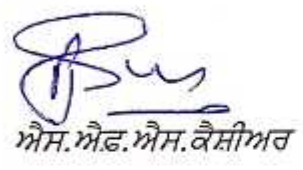 ਐਸ.ਐਫ਼.ਐਸ.ਕੈਸ਼ੀਅਰ